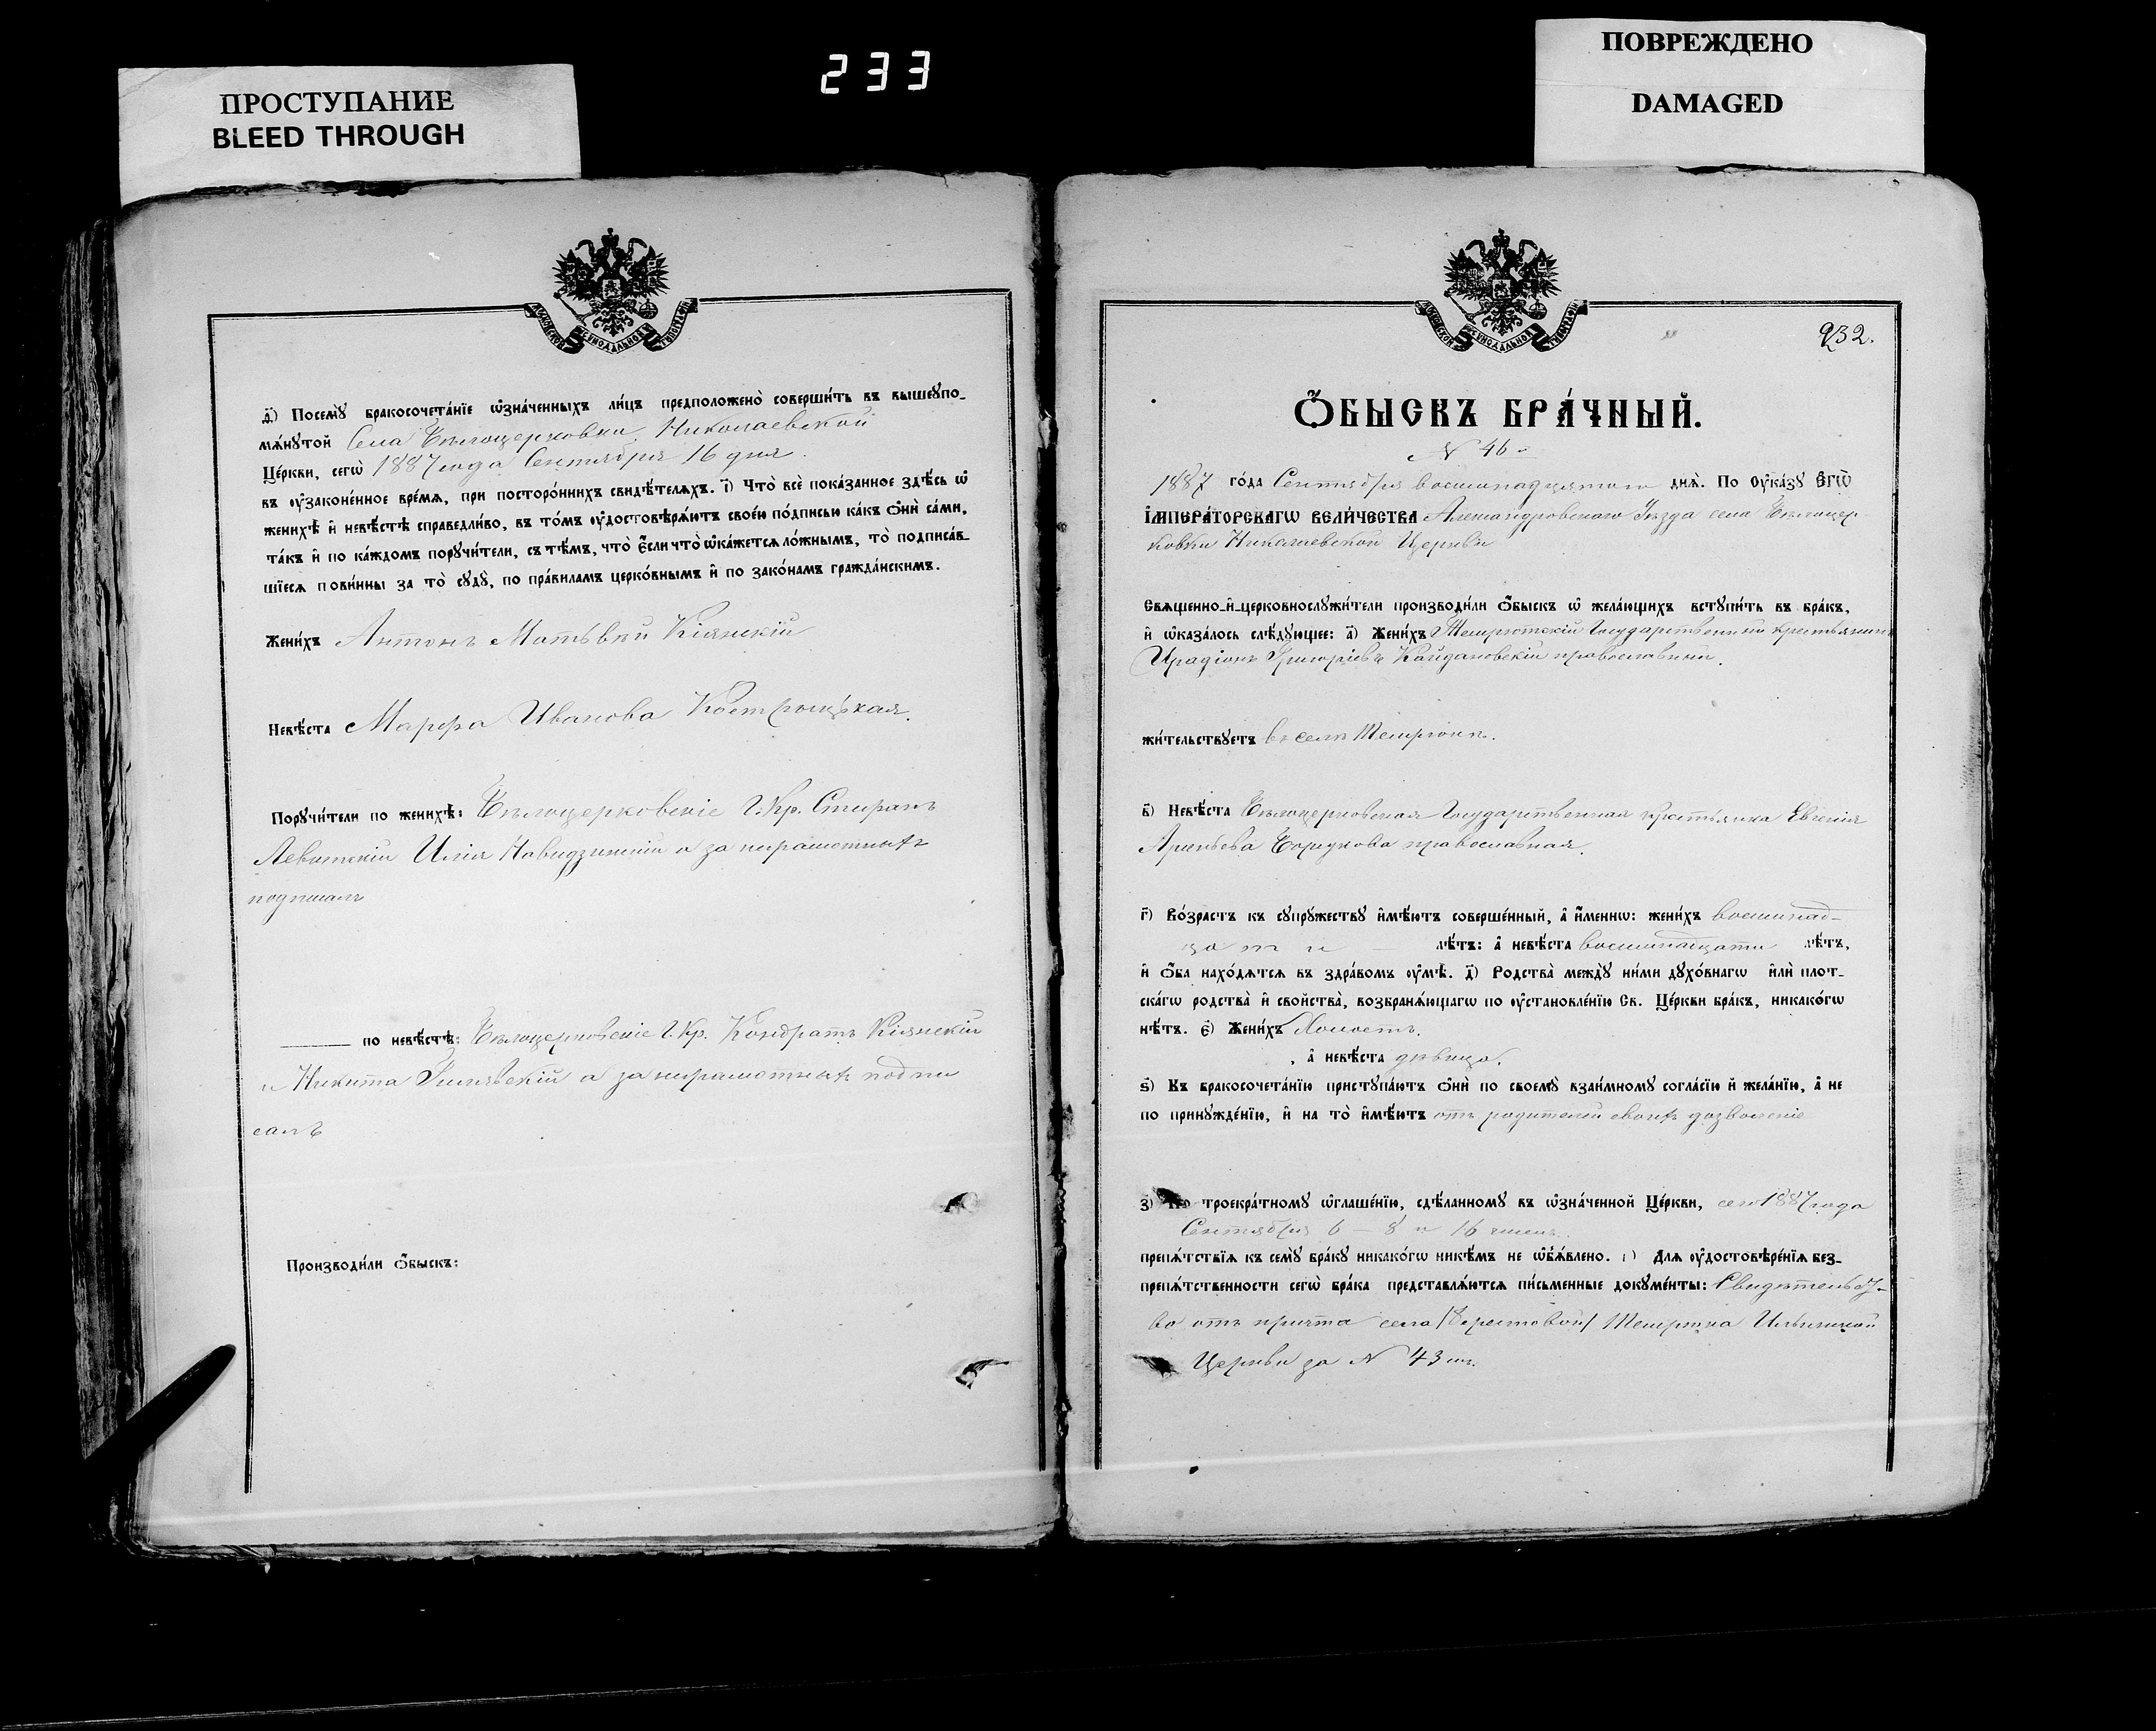 ПРОСТУПАНИЕ
BLEED THROUGH
233
ПОВРЕЖДЕНО
DAMAGED
МОСКОВСКОЙ СѴНОДАЛЬНОЙ ТѴПОГРАФІИ
д҃) Посемꙋ̀ бракосочета́нїе ѡ҆зна́ченныхъ ли́цъ предположено̀ соверши́ть въ вышеꙋпо-
мѧ́нꙋтой Села Бѣлоцерковки, Николаевской
Це́ркви, сегѡ̀ 1887 года Сентября 16 дня.
въ ᲂу҆законе́нное вре́мѧ, при посторо́ннихъ свидѣ́телѧхъ. і҃) Что̀ всѐ пока́занное здѣ́сь ѡ҆
женихѣ̀ и҆ невѣ́стѣ справедли́во, въ то́мъ ᲂу҆достовѣрѧ́ютъ свое́ю по́дписью ка́къ ѻ҆нѝ са́ми,
та́къ и҆ по ка́ждомъ порꙋчи́тели, съ тѣ́мъ, что̀ є҆́сли что̀ ѡ҆ка́жетсѧ ло́жнымъ, то̀ подписа́в-
шїесѧ пови́нны за то̀ сꙋдꙋ̀, по пра́виламъ церко́внымъ и҆ по зако́намъ гражда́нскимъ.
Жени́хъ Антонъ Матѣвѣй Кіянскій
Невѣ́ста Марфа Иванова
Порꙋчи́тели по женихѣ̀: Бѣлоцерковскіе Г. Кр. Стефанъ
Левитскій Илія а за неграмотныхъ
подписалъ
по невѣ́стѣ: Бѣлоцерковскіе Г. Кр. Кондратъ Кіянскій
и Никита а за неграмотныхъ подпи
салъ
Производи́ли ѻ҆́быскъ:
МОСКОВСКОЙ СѴНОДАЛЬНОЙ ТѴПОГРАФІИ
232.
Ѻ҆́БЫСКЪ БРА́ЧНЫЙ.
N 46
1887 го́да Сентября восемнадцятого днѧ̀. По ᲂу҆ка́зꙋ Є҆гѡ̀
І҆мпера́торскагѡ Вели́чества Александровскаго Уѣзда села Бѣлоцер-
ковки Николаевской Церкви
Свѧщенно-и҆-церковнослꙋжи́тели производи́ли ѻ҆́быскъ ѡ҆ жела́ющихъ встꙋпи́ть въ бра́къ,
и҆ ѡ҆каза́лось слѣ́дꙋющее: а҃) Жени́хъ Темрютскій Государственный крестьянинъ
Ирадіонъ Григоріевъ Кайдановскій православный.
жи́тельствꙋетъ въ селѣ Темрюкѣ.
в҃) Невѣ́ста Бѣлоцерковская Государственная крестьянка Евгенія
Арсеньева православная.
г҃) Во́зрастъ къ сꙋпрꙋ́жествꙋ и҆мѣ́ютъ соверше́нный, а҆ и҆́меннѡ: жени́хъ восемнад-
цати лѣ́тъ: а҆ невѣ́ста восемнадцати лѣ́тъ,
и҆ ѻ҆́ба нахо́дѧтсѧ въ здра́вомъ ᲂу҆мѣ̀. д҃) Родства̀ междꙋ̀ ни́ми дꙋхо́внагѡ и҆лѝ плот-
ска́гѡ родства̀ и҆ свойства̀, возбранѧ́ющагѡ по ᲂу҆становле́нїю Св. Це́ркви бра́къ, никако́гѡ
нѣ́тъ. є҃) Жени́хъ Холостъ.
, а҆ невѣ́ста дѣвица.
ѕ҃) Къ бракосочета́нїю пристꙋпа́ютъ ѻ҆нѝ по своемꙋ̀ взаи́мномꙋ согла́сїю и҆ жела́нїю, а҆ не
по принꙋжде́нїю, и҆ на то̀ и҆мѣ́ютъ отъ родителей своихъ дозволеніе
з҃) По троекра́тномꙋ ѡ҆глаше́нїю, сдѣ́ланномꙋ въ ѡ҆зна́ченной Це́ркви, сего 1887 года
Сентября 6 – 8 и 16 чиселъ
препѧ́тствїѧ къ семꙋ̀ бра́кꙋ никако́гѡ никѣ́мъ не ѡ҆б̾ѧ́влено. и҃) Длѧ ᲂу҆достовѣре́нїѧ без-
препѧ́тственности сегѡ̀ бра́ка представлѧ́ютсѧ пи́сьменные докꙋме́нты: Свидѣтельст-
во отъ причта села /Берестовой/ Темрюка Ильинской
Церкви за N 43мъ.